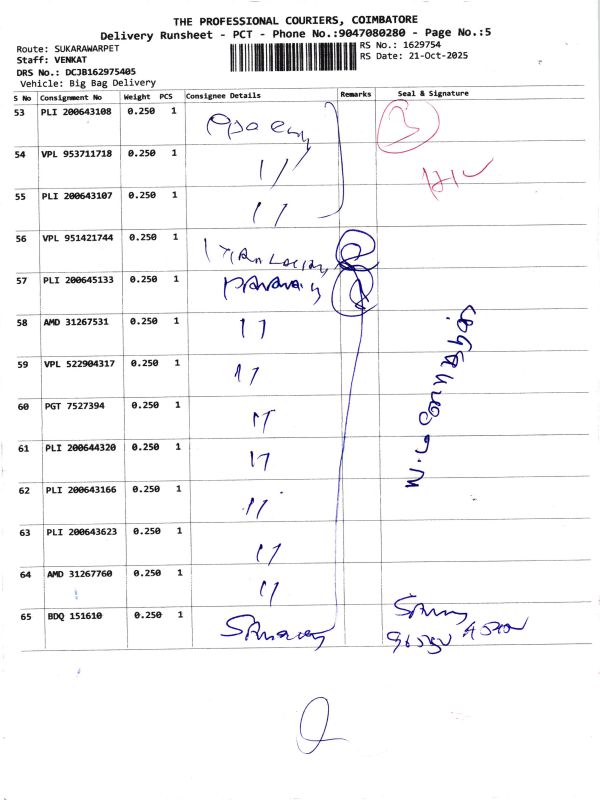 THE PROFESSIONAL COURIERS, COIMBATORE
Delivery Runsheet - PCT - Phone No.:9047080280 - Page No.:5
Route: SUKARAWARPET
RS No.: 1629754
Staff: VENKAT
RS Date: 21-Oct-2025
DRS No.: DCJB162975405
Vehicle: Big Bag Delivery
S No Consignment No Weight PCS Consignee Details Remarks Seal & Signature
53 PLI 200643108 0.250 1
54 VPL 953711718 0.250 1 11
55 PLI 200643107 0.250 1 11
56 VPL 951421744 0.250 1
57 PLI 200645133 0.250 1
58 AMD 31267531 0.250 1 11
59 VPL 522904317 0.250 1 11
60 PGT 7527394 0.250 1 11
61 PLI 200644320 0.250 1 11
62 PLI 200643166 0.250 1 11
63 PLI 200643623 0.250 1 11
64 AMD 31267760 0.250 1 11
65 BDQ 151610 0.250 1